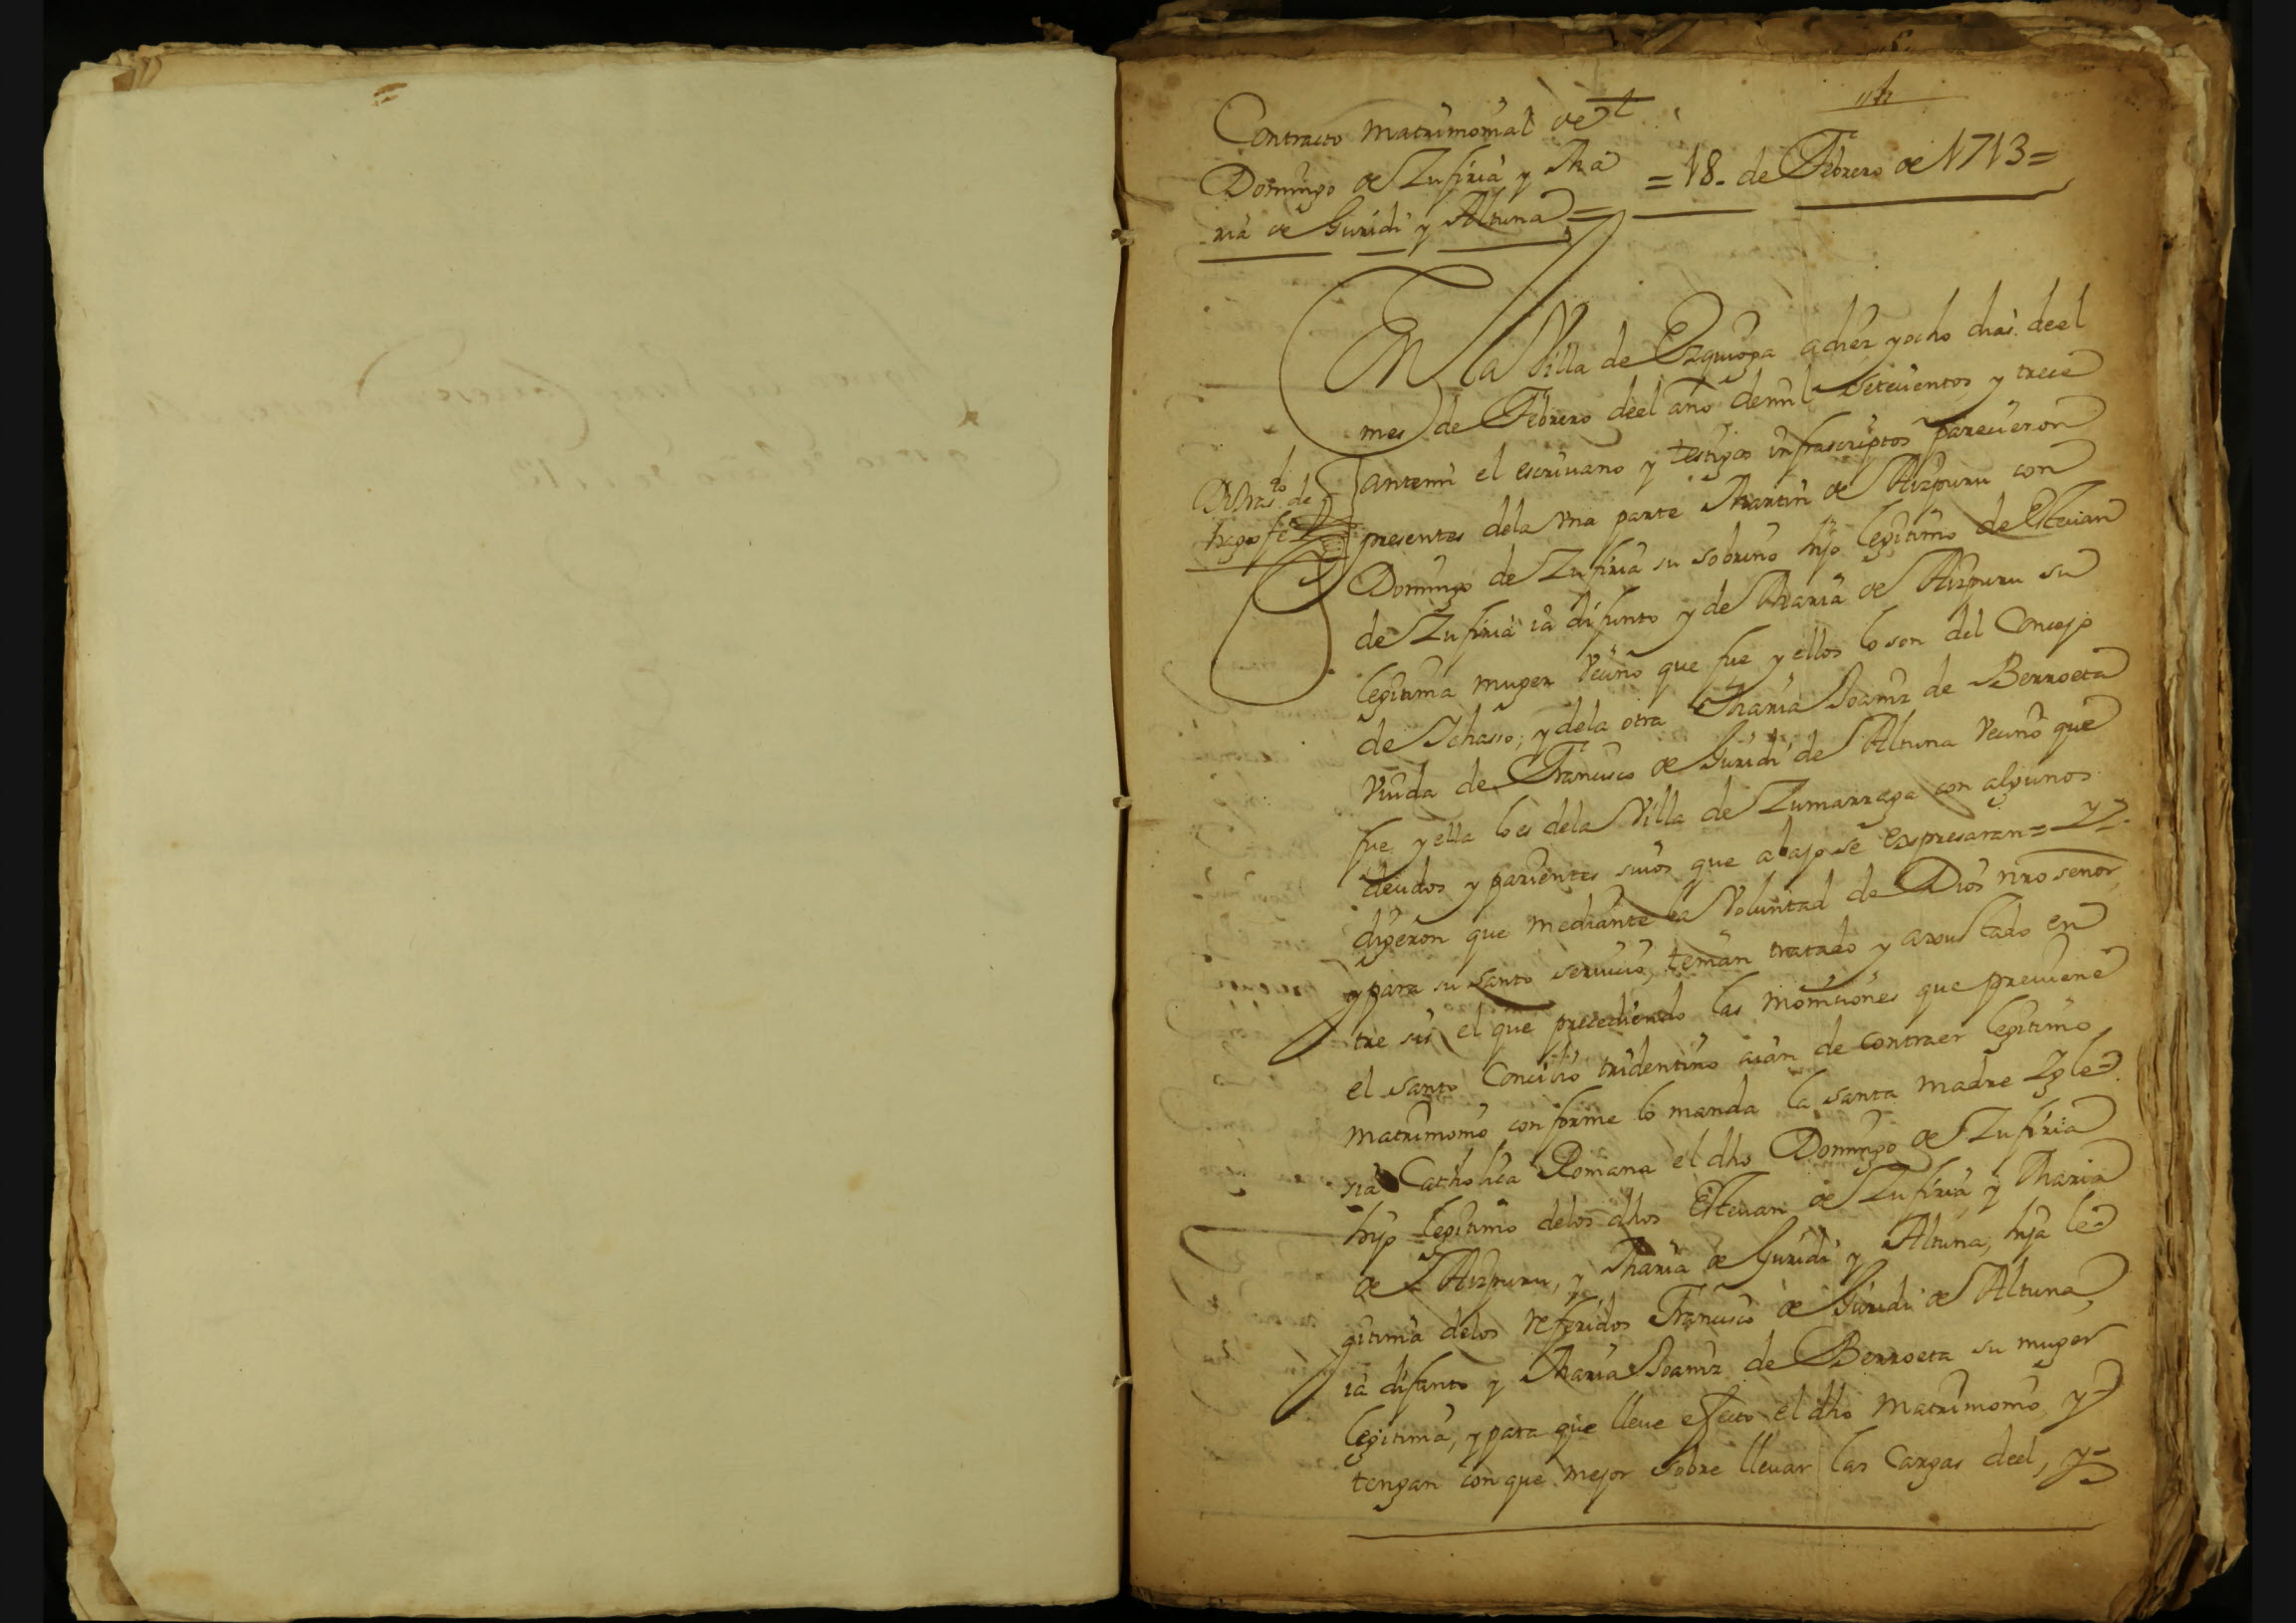 Contracto matrimonial de
Domingo de Zufiria y Ma
ria de Guridi y Altuna =
= 18. de Febrero de 1713 =
En la Villa de Ezquioga a diez y ocho dias deel
mes de Febrero deel año demil setecientos y trece
antemi el escriuano y testigos infrascriptos parecieron
presentes dela vna parte Martin de Aizpuru con
Domingo de Zufiria su sobrino hijo legitimo de Esteuan
de Zufiria ia difunto y de Maria de Aizpuru su
legitima muger vecino que fue y ellos lo son del Concejo
de Ichasso; y dela otra Maria Joaniz de Berroeta
viuda de Francisco de Guridi de Altuna vecino que
fue y ella lo es dela Villa de Zumarraga con algunos
deudos y parientes suios que abajo se expresaran = y =
digeron que mediante la voluntad de Dios nro señor,
y para su santo seruicio, tenian tratado y axustado en
tre sis el que precediendo las moniciones que preuiene
el santo Concilio tridentino aian de contraer legitimo
matrimonio conforme lo manda la santa madre Igle=
sia Catholica Romana el dho Domingo de Zufiria
hijo legitimo delos dhos Esteuan de Zufiria, y Maria
de Aizpuru, y Maria de Guridi y Altuna, hija le=
gitima delos referidos Francisco de Guridi de Altuna,
ia difunto y Maria Joaniz de Berroeta su muger
legitima, y para que lleue effecto el dho matrimonio y =
tengan conque mejor sobre lleuar las cargas deel, y =
hago fe